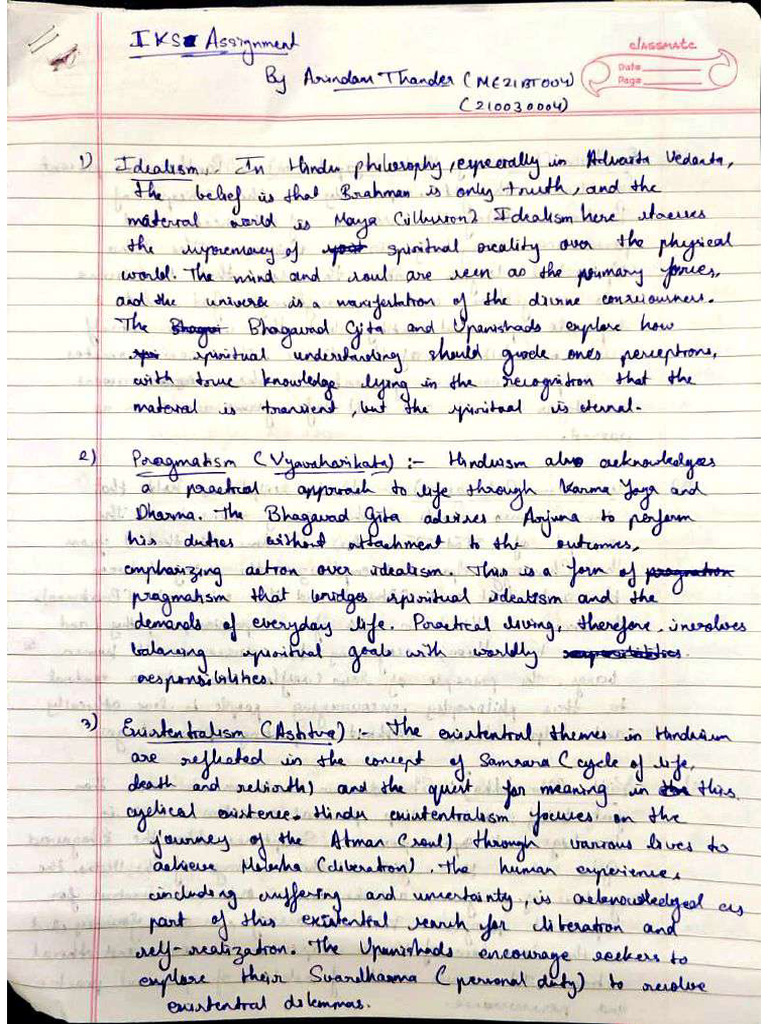 IKS Assignment
classmate
Date
Page
By Arindam Thander (ME21BT004)
(210030004)
1) Idealism :- In Hindu philosophy, especially in Advaita Vedanta,
the belief is that Brahman is only truth, and the
material world is Maya (illusion). Idealism here stresses
the supremacy of spiritual reality over the physical
world. The mind and soul are seen as the primary forces,
and the universe is a manifestation of the divine consciousness.
The Bhagavad Gita and Upanishads explore how
spiritual understanding should guide one's perceptions,
with true knowledge lying in the recognition that the
material is transient, but the spiritual is eternal.
2) Pragmatism (Vyavaharikata) :- Hinduism also acknowledges
a practical approach to life through Karma Yoga and
Dharma. The Bhagavad Gita advises Arjuna to perform
his duties without attachment to the outcomes,
emphasizing action over idealism. This is a form of
pragmatism that bridges spiritual idealism and the
demands of everyday life. Practical living, therefore, involves
balancing spiritual goals with worldly
responsibilities.
3) Existentialism (Astitva) :- The existential themes in Hinduism
are reflected in the concept of Samsara (cycle of life,
death and rebirth) and the quest for meaning in this
cyclical existence. Hindu existentialism focuses on the
journey of the Atman (soul) through various lives to
achieve Moksha (liberation). The human experience,
including suffering and uncertainty, is acknowledged as
part of this existential search for liberation and
self-realization. The Upanishads encourage seekers to
explore their Svardharma (personal duty) to resolve
existential dilemmas.